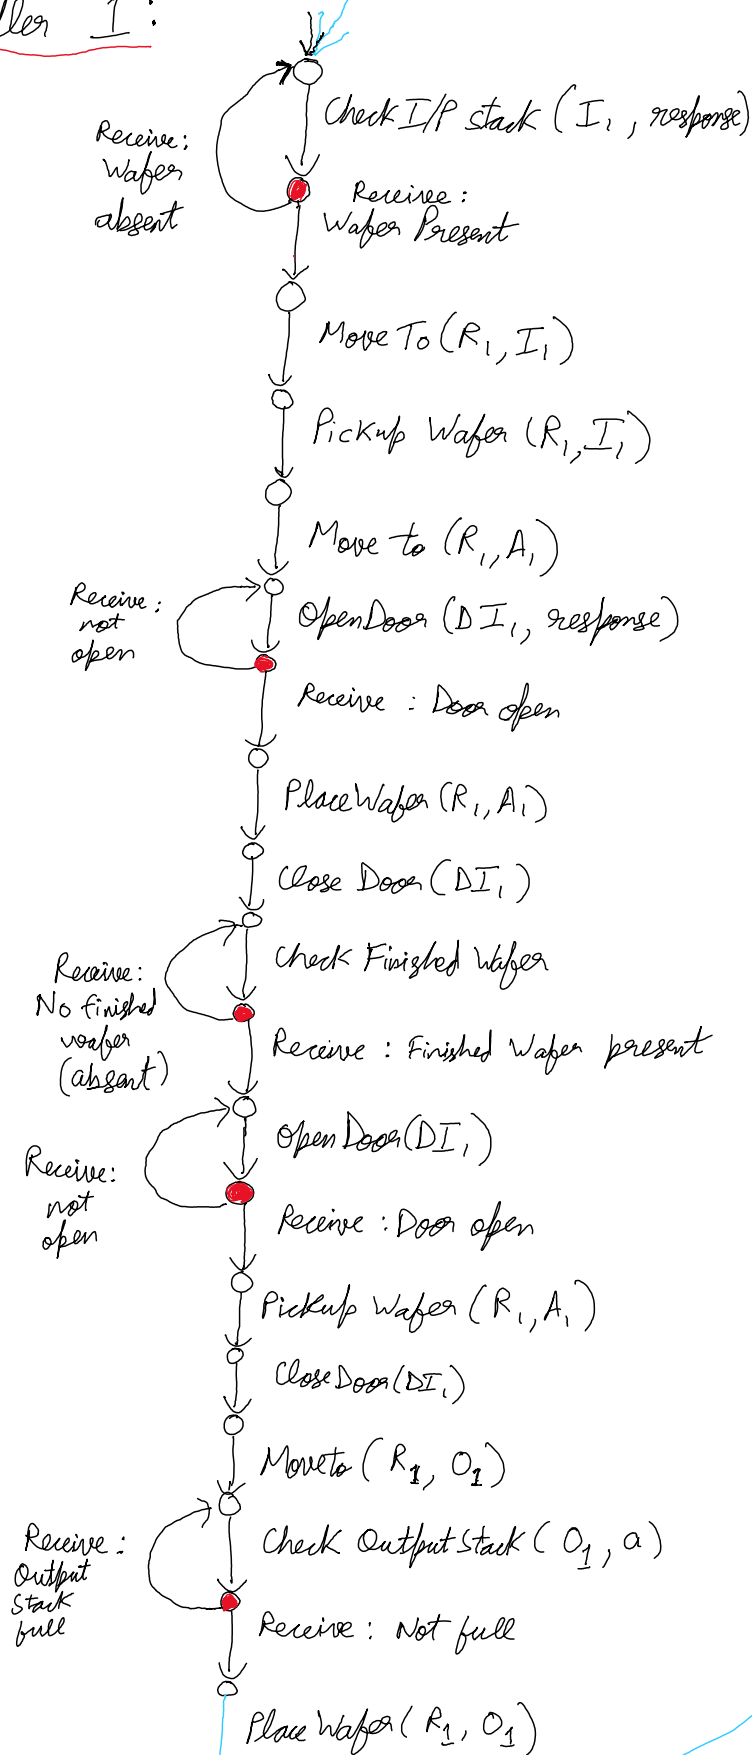 ller I:
Check I/P stack (I1, response)
Receive:
Wafer
absent
Receivee:
Wafer Present
Move To (R1, I1)
Pickup Wafer (R1, I1)
Move to (R1, A1)
Receive:
not
open
OpenDoor (DI1, response)
Receive : Door open
PlaceWafer (R1, A1)
Close Door (DI1)
Check Finished Wafer
Receive:
No finished
wafer
(absent)
Receive : Finished Wafer present
Open Door(DI1)
Receive:
not
open
Receive : Door open
Pickup Wafer (R1, A1)
CloseDoor(DI1)
Moveto (R1, O1)
Check Output Stack (O1, a)
Receive:
Output
Stack
full
Receive : Not full
Place Wafer (R1, O1)